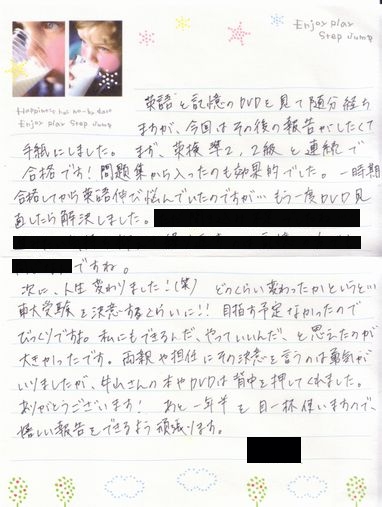 Enjoy play
Step Jump
Happiness has no-by date
Enjoy play Step Jump
英語と記憶のDVDを見て随分経ち
ますが、今回はその後の報告がしたくて
手紙にしました。まず、英検準2, 2級と連続で
合格です!問題集から入ったのも効果的でした。一時期
合格してから英語伸び悩んでいたのですが…もう一度DVD見
直したら解決しました。
ですね。
次に、人生変わりました!(笑) どのくらい変わったかというと…
東大受験を決意するくらいに!!目指す予定なかったので
びっくりですね。私にもできるんだ、やっていいんだ、と思えたのが
大きかったです。両親や担任にその決意を言うのは勇気が
いりましたが、牛山さんの本やDVDは背中を押してくれました。
ありがとうございます! あと一年半を目一杯使いますので、
嬉しい報告をできるよう頑張ります。